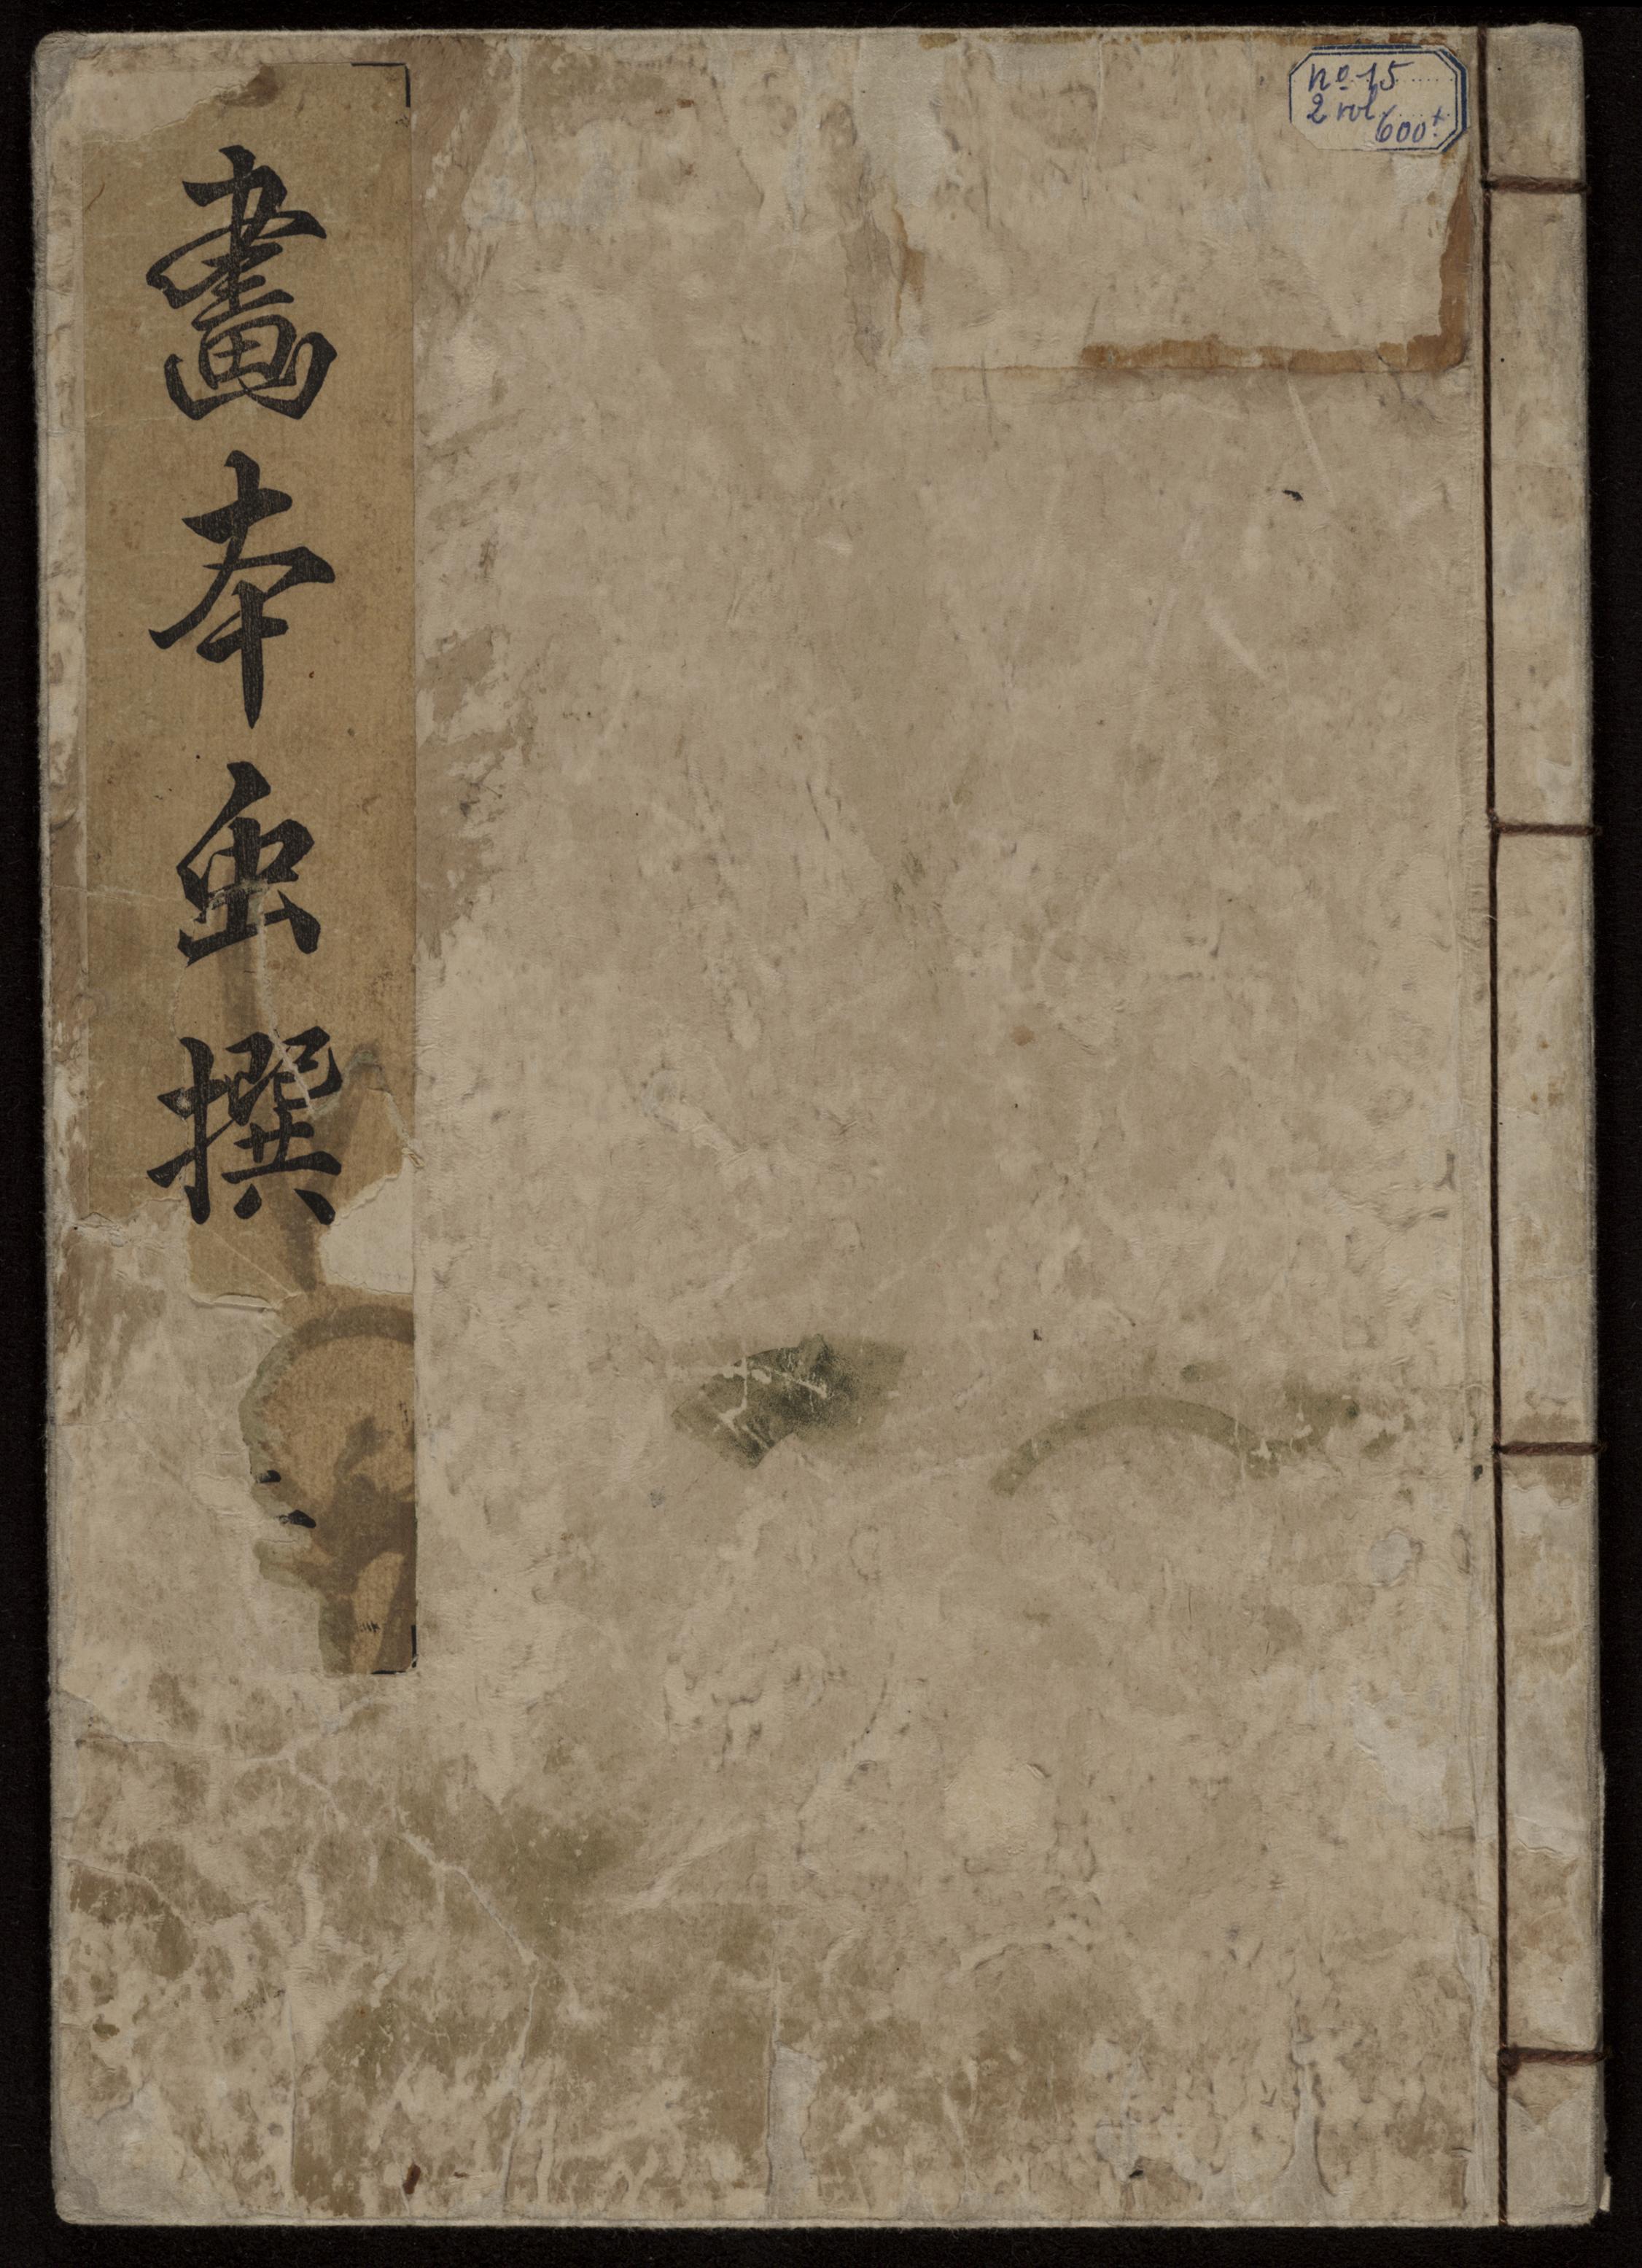 畫本虫撰
nº 15
2 vol
600